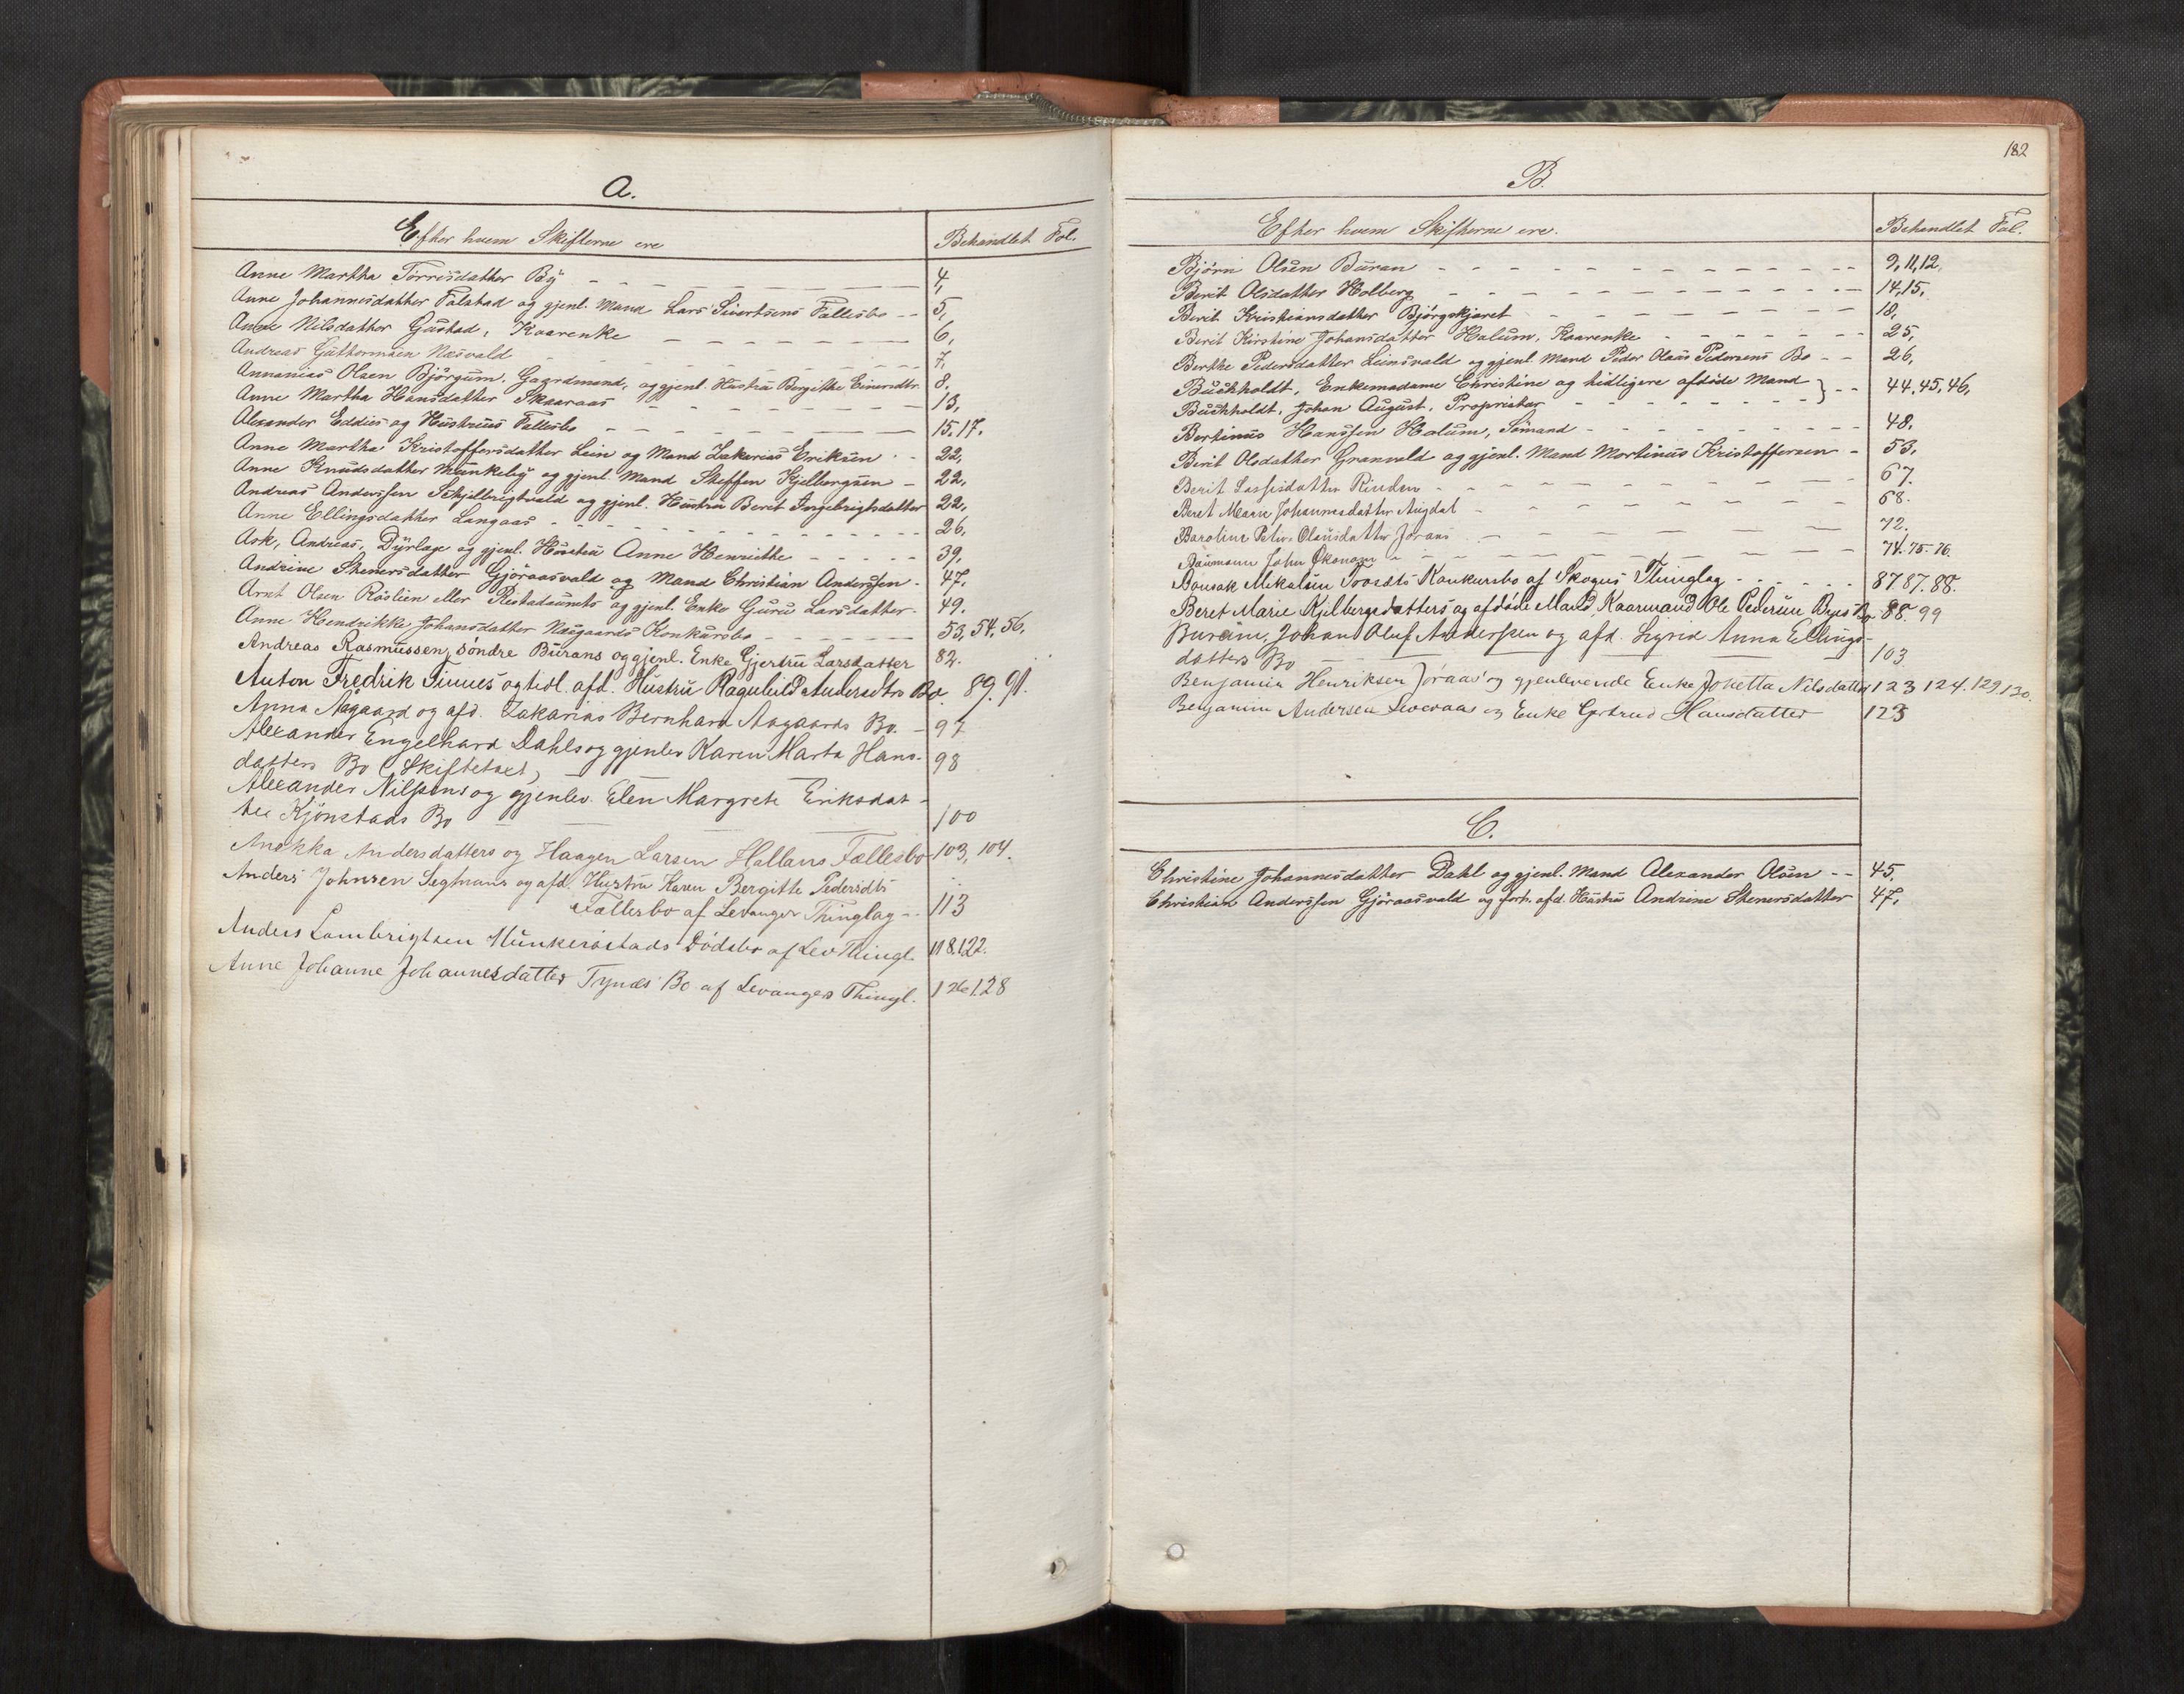 A.
Efter hvem Skifterne ere Behandlet Fol.
Anne Martha Torrisdatter By 4,
Anne Johannesdatter Falstad og gjenl. Mand Lars Sivertsens Fallesbo 5,
Anne Nilsdatter Gustad, Kaarenke 6,
Andreas Guttormsen Næsvald 7,
Annanias Olsen Björgum, Gaardmand, og gjenl. Hustru Bergitte Einersdtr. 8.
Anne Martha Hansdatter Skaaraas 13,
Alexander Eddies og Hustrues Fallesbo 15.17.
Anne Martha Kristoffersdatter Lein og Mand Zakarias Eriksen 22,
Anne Knudsdatter Munkeby og gjenl. Mand Steffen Kjelbergsen 22,
Andreas Anderssen Skjelbrigtvald og gjenl. Hustru Berit Ingebrigtsdatter 22,
Anne Ellingsdatter Langaas 26,
Ask, Andreas, Dyrlæge og gjenl. Hustru Anne Henriette 39,
Andrine Stenersdatter Gjöraasvald og Mand Christian Anderssen 47.
Arnt Olsen Röslien eller Ristadaunets og gjenl. Enke Guru Larsdatter 49.
Anne Hendrikke Johansdatter Næsgaards Konkursbo 53, 54, 56,
Andreas Rasmussen, söndre Burans og gjenl. Enke Gjertru Larsdatter 82.
Anton Fredrik Finnes og tidl. afd. Hustru Ragnhild Andersdtr. Bo. 89. 91.
Anna Aagaard og afd. Zakarias Bernhard Aagaards Bo. 97
Alexander Engelhard Dahls og gjenlev Karen Marta Hans-
datters Bo (Skiftetaxt) 98
Alexander Nilssens og gjenlev. Elen Margrete Eriksdat-
ter Kjönstads Bo 100
Anekka Andersdatters og Haagen Larsen Hallans Fællesbo 103, 104.
Anders Johnsen Segtnans og afd. Hustru Karen Bergitte Pedersdts
Fællesbo af Levanger Thinglag 113
Anders Lambrigtsen Munkeröstads Dödsbo af Lev Thingl. 118.122.
Anne Johanne Johannesdatter Tynæs Bo af Levangers Thingl. 126 128
182
B.
Efter hvem Skifterne ere. Behandlet Fol.
Björn Olsen Buran 9, 11, 12.
Berit Olsdatter Holberg 14, 15,
Berit Kristiansdatter Björgskjaret 18,
Berit Kirstine Johansdatter Halum, Kaarenke 25,
Berthe Pedersdatter Leinsvald og gjenl. Mand Peder Olaus Pedersens Bo 26,
Buchholdt, Enkemadame Christine og tidligere afdöde Mand } 44, 45, 46,
Buchholdt, Johan August, Proprietær
Bertinus Hanssen Halum, Sömand 48.
Berit Olsdatter Granvald og gjenl. Mand Mortinus Kristoffersen 53.
Berit Lassisdatter Rinden 67.
Beret Marie Johannesdatter Augdal 68.
Baroline Petri. Olausdatter Joraas 72.
Baumann John Økonom 74. 75. 76.
Bausak Mikalsen Troseths Konkursbo af Skogns Thinglag 87 87. 88.
Beret Marie Kjelbergsdatters og afdöde Mand, Kaarmand Ole Pedersen Byes Bo. 88. 99
Bureim, Johan Oluf Anderssen og afd. Sigrid Anna Ellings-
datters Bo 103
Benjamin Henriksen Joraas og gjenlevende Enke Johetta Nilsdatter 123 124. 129 130
Benjamin Andersen og Enke Gertrud Hansdatter 123
C.
Christine Johannesdatter Dahl og gjenl. Mand Alexander Olsen 45.
Christian Anderssen Gjöraasvald og forh. afd. Hustru Andrine Stenersdatter 47.